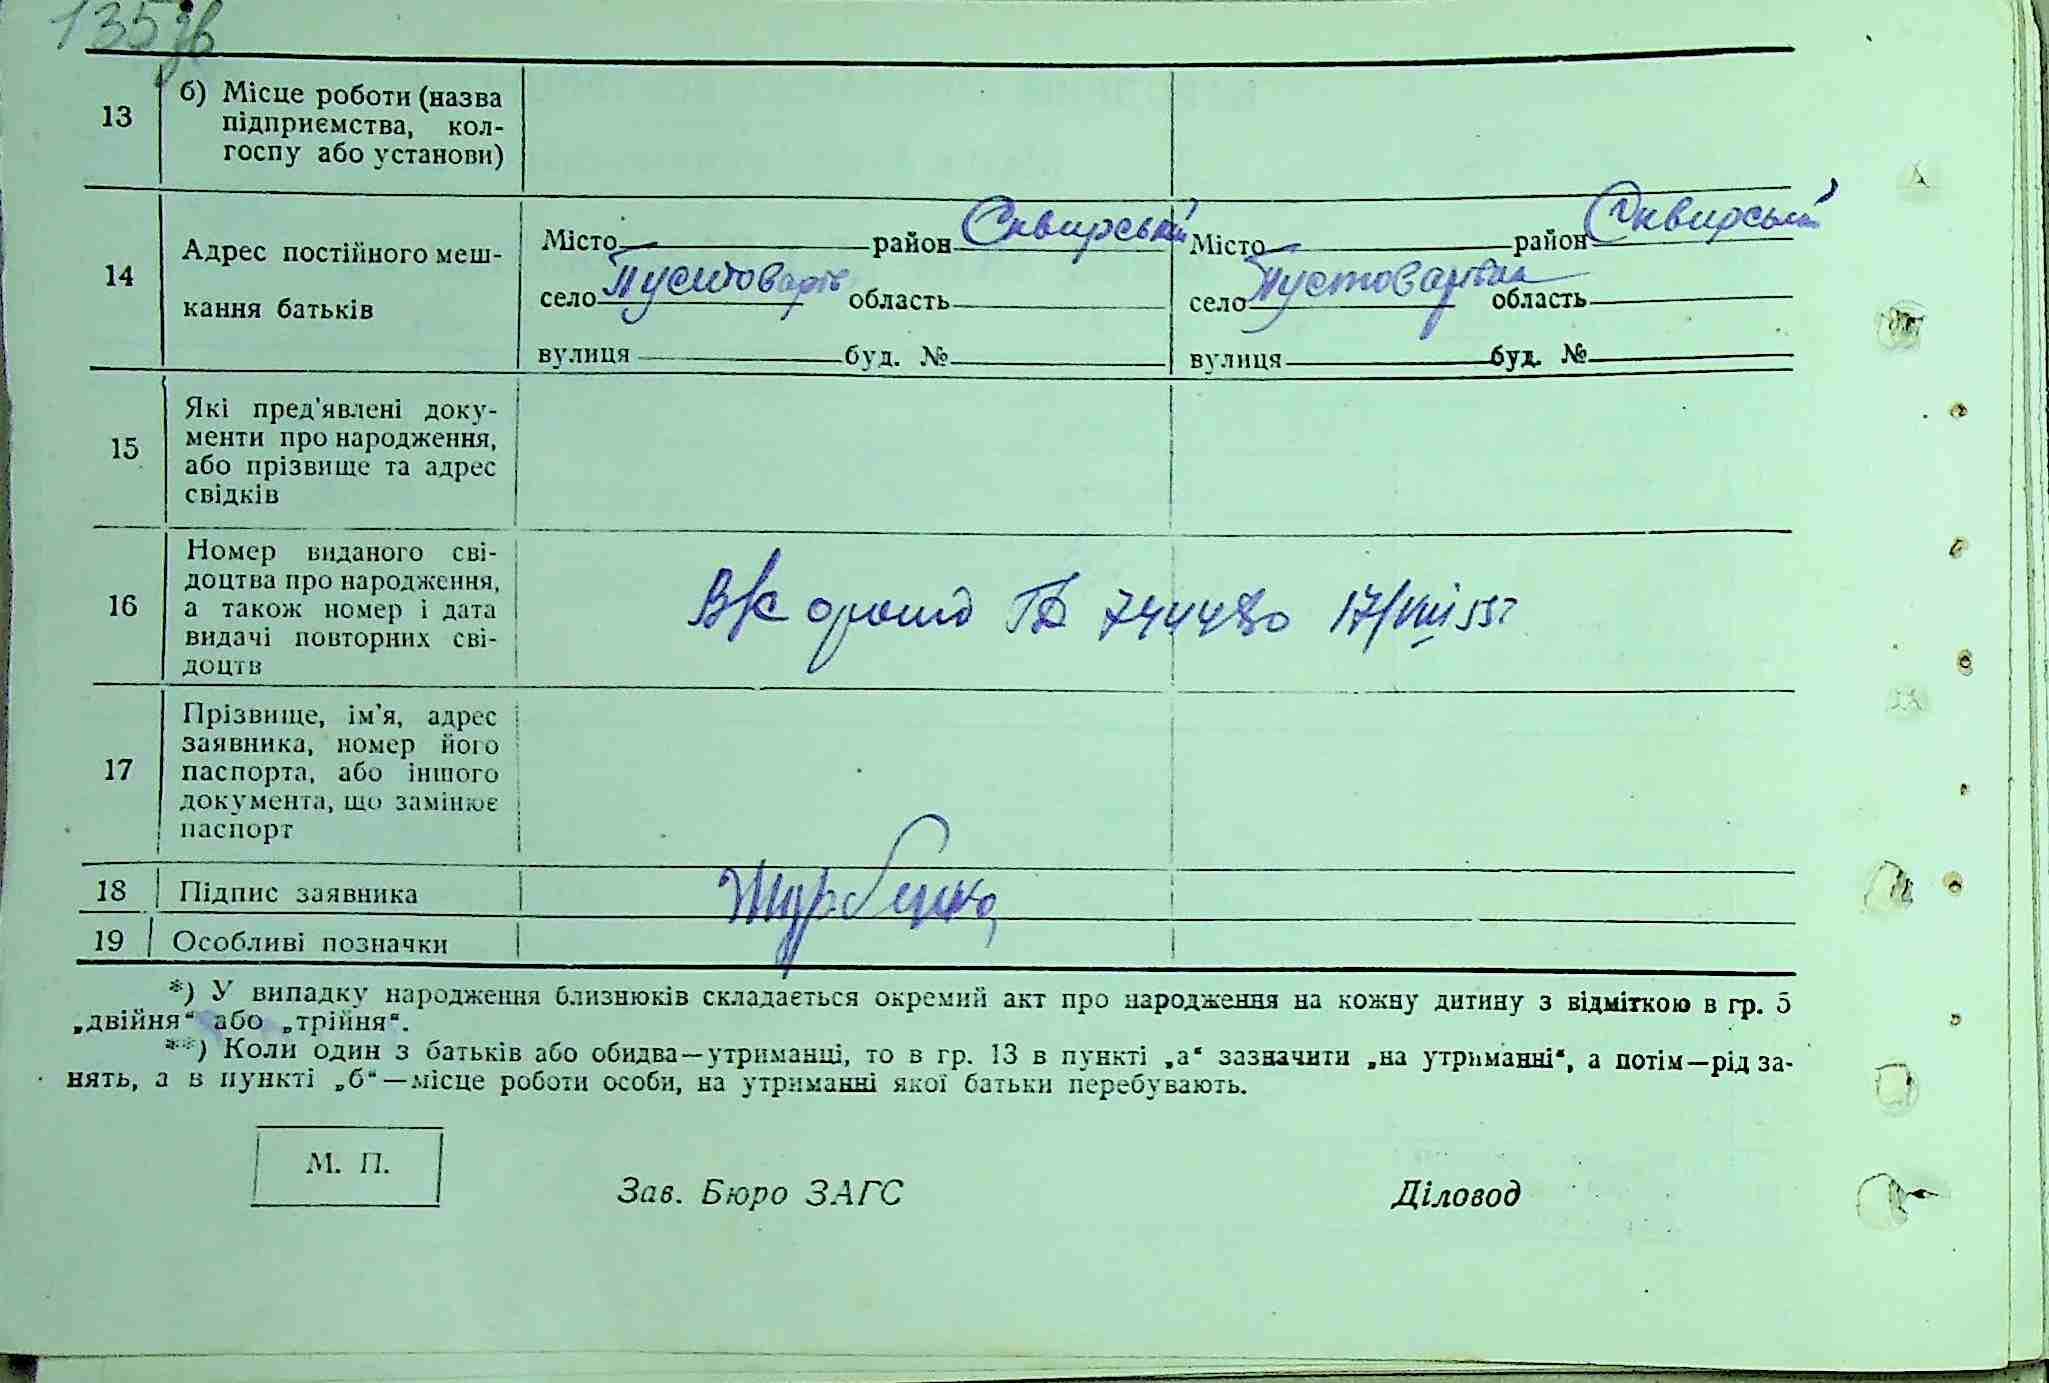 135зв
13
б) Місце роботи (назва
підприємства, кол-
госпу або установи)
14
Адрес постійного меш-
кання батьків
Місто — район Сквирський
село Пустоварів область
вулиця буд. №
Місто — район Сквирський
село Пустоварівка область
вулиця буд. №
15
Які пред'явлені доку-
менти про народження,
або прізвище та адрес
свідків
16
Номер виданого сві-
доцтва про народження,
а також номер і дата
видачі повторних сві-
доцтв
744480 17/VIII 55г
17
Прізвище, ім'я, адрес
заявника, номер його
паспорта, або іншого
документа, що замінює
паспорт
18 Підпис заявника
19 Особливі позначки
*) У випадку народження близнюків складається окремий акт про народження на кожну дитину з відміткою в гр. 5
„двійня“ або „трійня“.
**) Коли один з батьків або обидва—утриманці, то в гр. 13 в пункті „а“ зазначити „на утриманні“, а потім—рід за-
нять, а в пункті „б“—місце роботи особи, на утриманні якої батьки перебувають.
М. П.
Зав. Бюро ЗАГС
Діловод